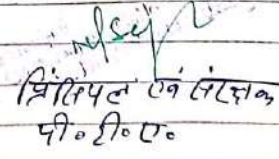 प्रिंसिपल एवं संरक्षक
पी॰ टी॰ ए॰